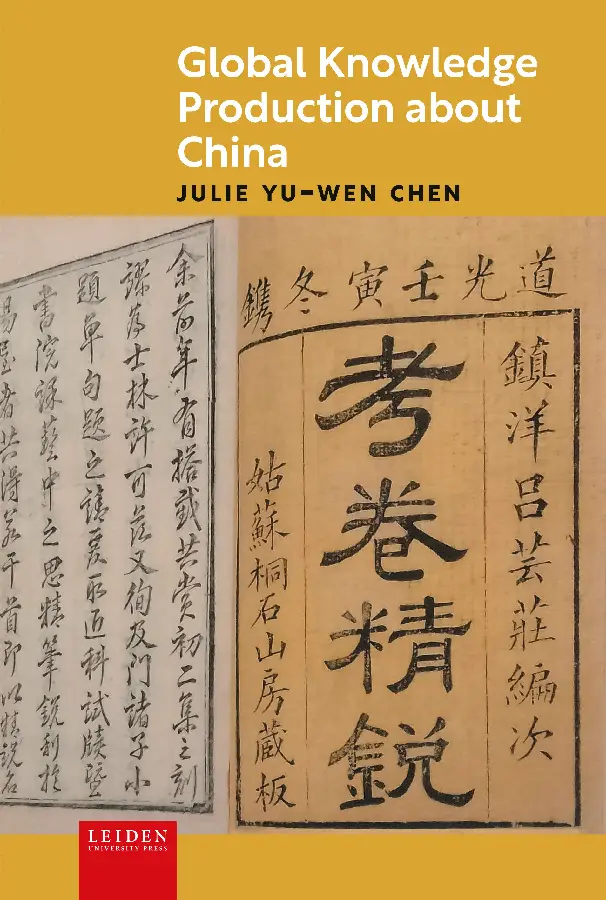 Global Knowledge
Production about
China
JULIE YU-WEN CHEN
道光壬寅冬鐫
鎮洋呂芸莊編次
考卷精銳
姑蘇桐石山房藏板
余前年有搭截共賞初二集之刻
謬為士林許可茲又徇及門諸子小
題單句題之請爰取近科試牘暨
書院課藝中之思精筆銳利於
場屋者共得若干首即以精銳名
LEIDEN
UNIVERSITY PRESS